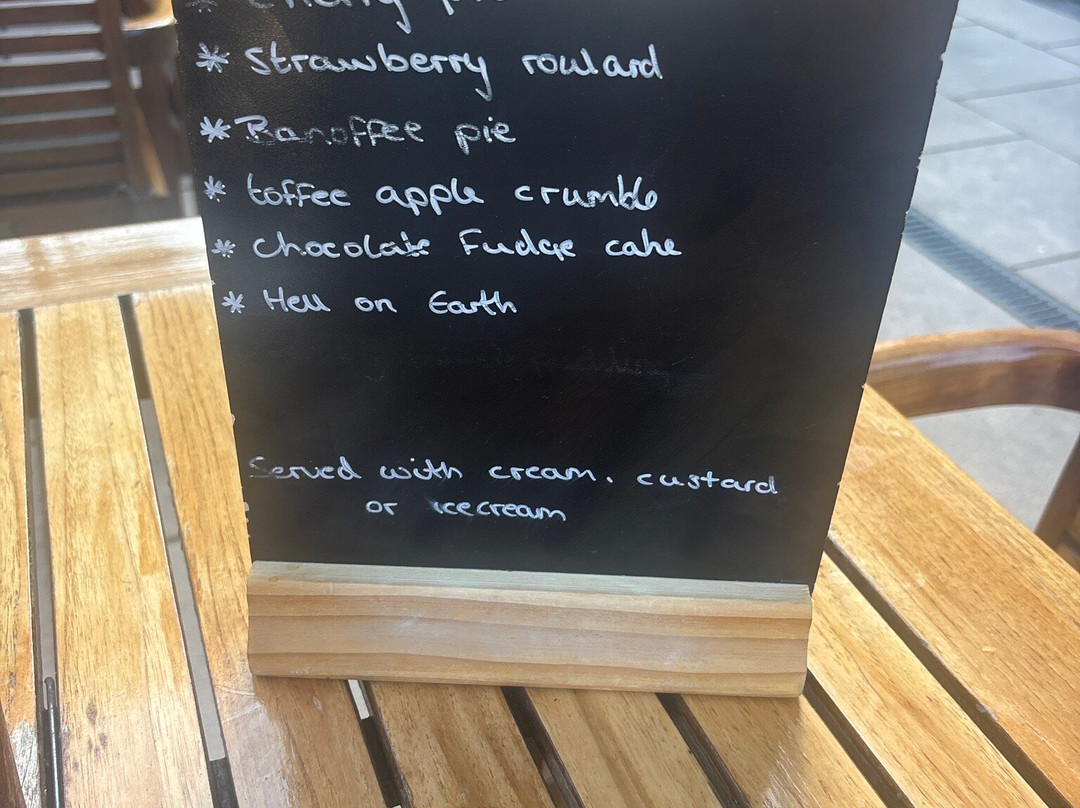 * Cherry pie
* Strawberry roulard
* Banoffee pie
* toffee apple crumble
* Chocolate Fudge cake
* Hell on Earth
Served with cream. custard
or icecream